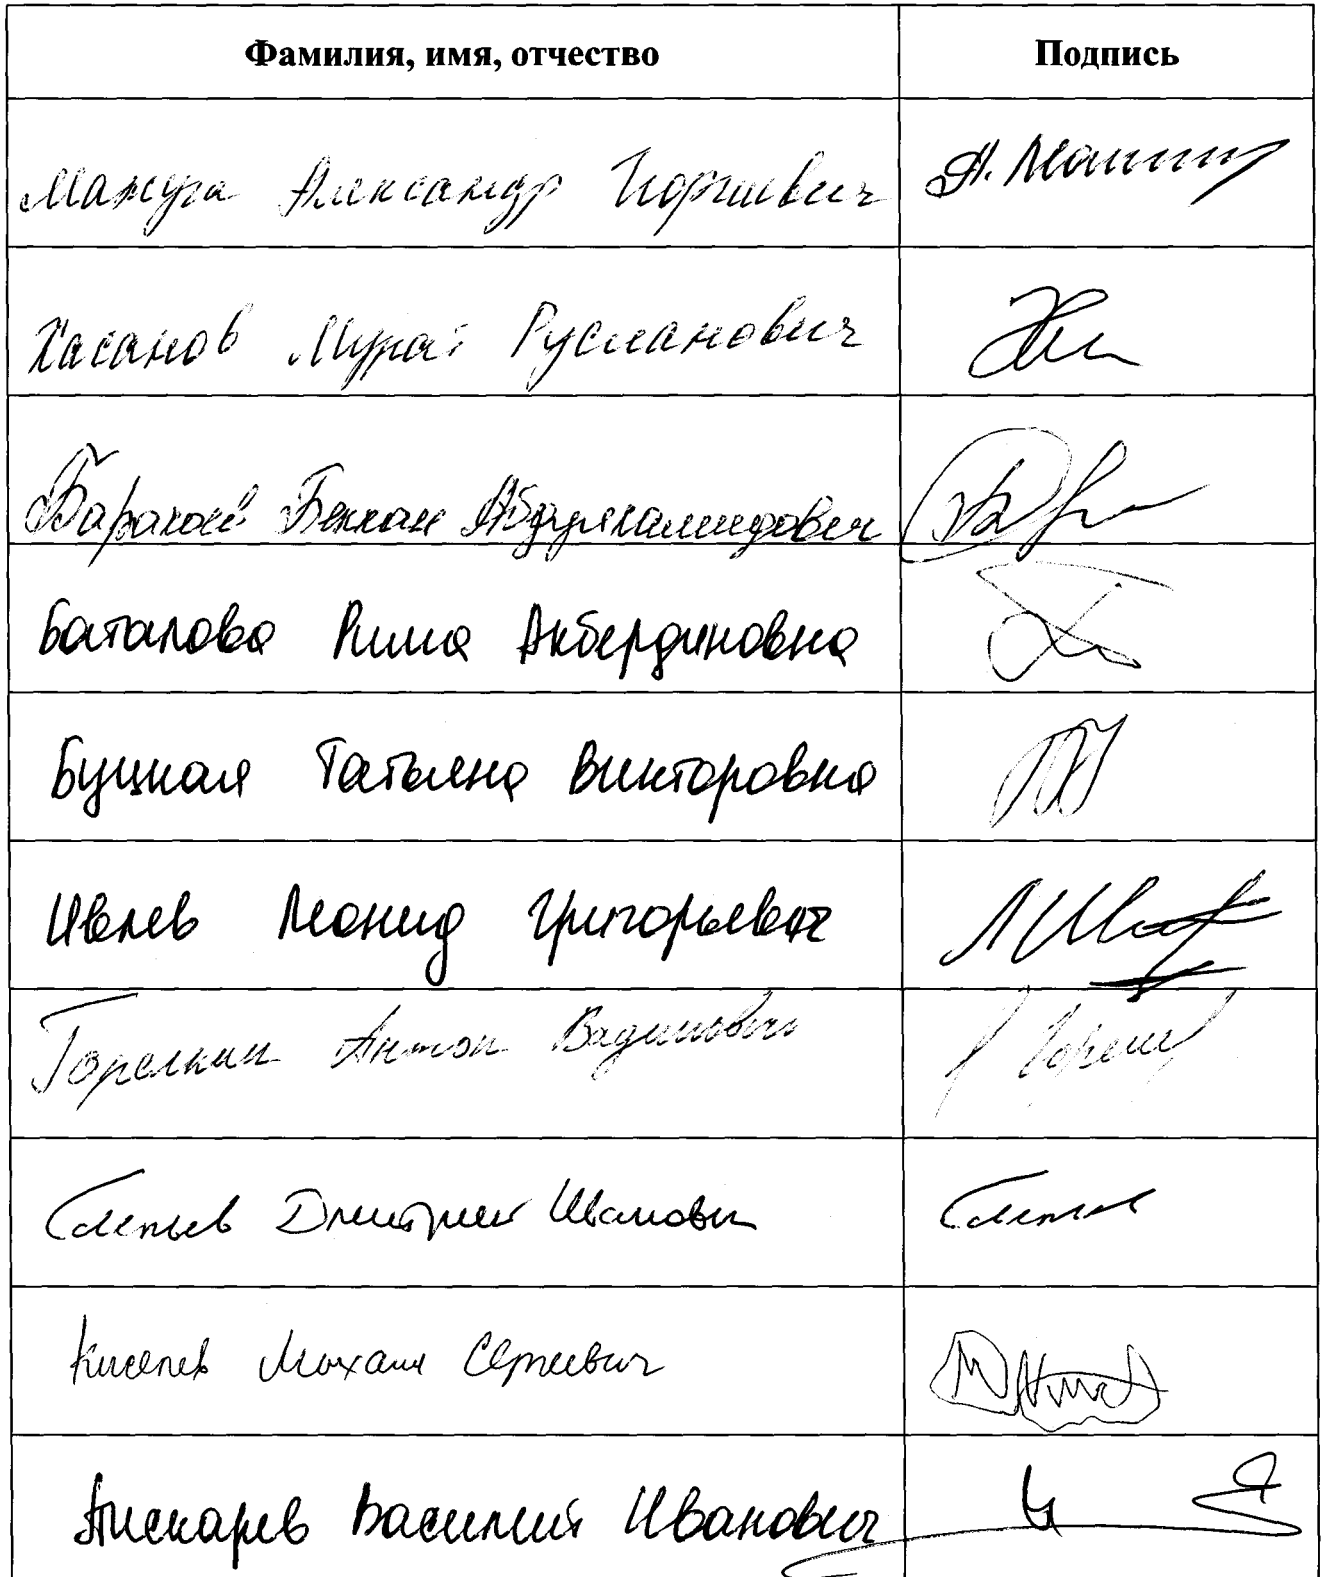 Фамилия, имя, отчество Подпись
Мажуга Александр Георгиевич А. Мажуга
Хасанов Мурат Русланович
Барахоев Бекхан Абдулхамидович
Баталова Рима Акбердиновна
Буцкая Татьяна Викторовна
Ивлев Леонид Григорьевич
Горелкин Антон Вадимович
Дмитрий Иванович
Киселев Михаил Сергеевич
Пискарев Василий Иванович